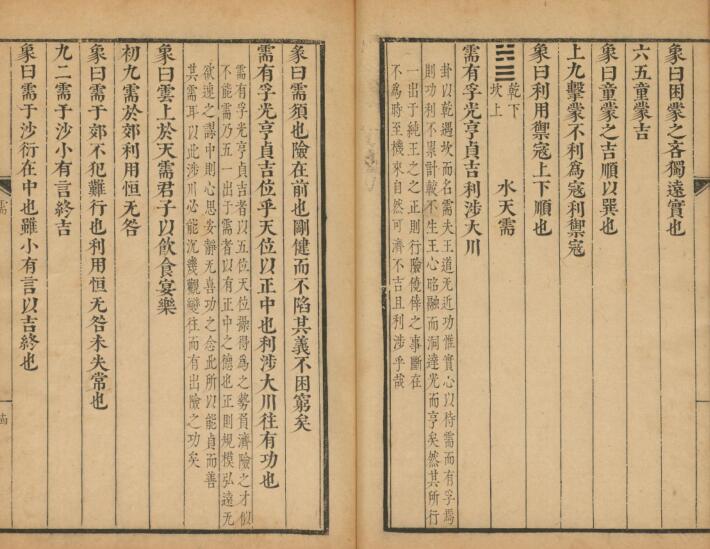 象曰困蒙之吝獨遠實也
六五童蒙吉
象曰童蒙之吉順以巽也
上九擊蒙不利爲寇利禦寇
象曰利用禦寇上下順也
䷄
乾下
坎上
水天需
需有孚光亨貞吉利涉大川
卦以乾遇坎而名需夫王道无近功惟實心以待需而有孚焉
則功利不累計較不生王心昭融而洞達光而亨矣然其所行
一出于純王之之正則行險僥倖之事斷在
不爲時至機來自然可濟不吉且利涉乎哉
彖曰需須也險在前也剛健而不陷其義不困窮矣
需有孚光亨貞吉位乎天位以正中也利涉大川往有功也
需有孚光亨貞吉者以五位天位操得爲之勢負濟險之才似
不能需乃五一出于需者以有正中之德也正則規模弘遠无
欲速之謀中則心思安靜无喜功之念此所以能貞而善
其需耳以此涉川必能沉幾觀變往而有出險之功矣
象曰雲上於天需君子以飲食宴樂
初九需於郊利用恒无咎
象曰需于郊不犯難行也利用恒无咎未失常也
九二需于沙小有言終吉
象曰需于沙衍在中也雖小有言以吉終也
需